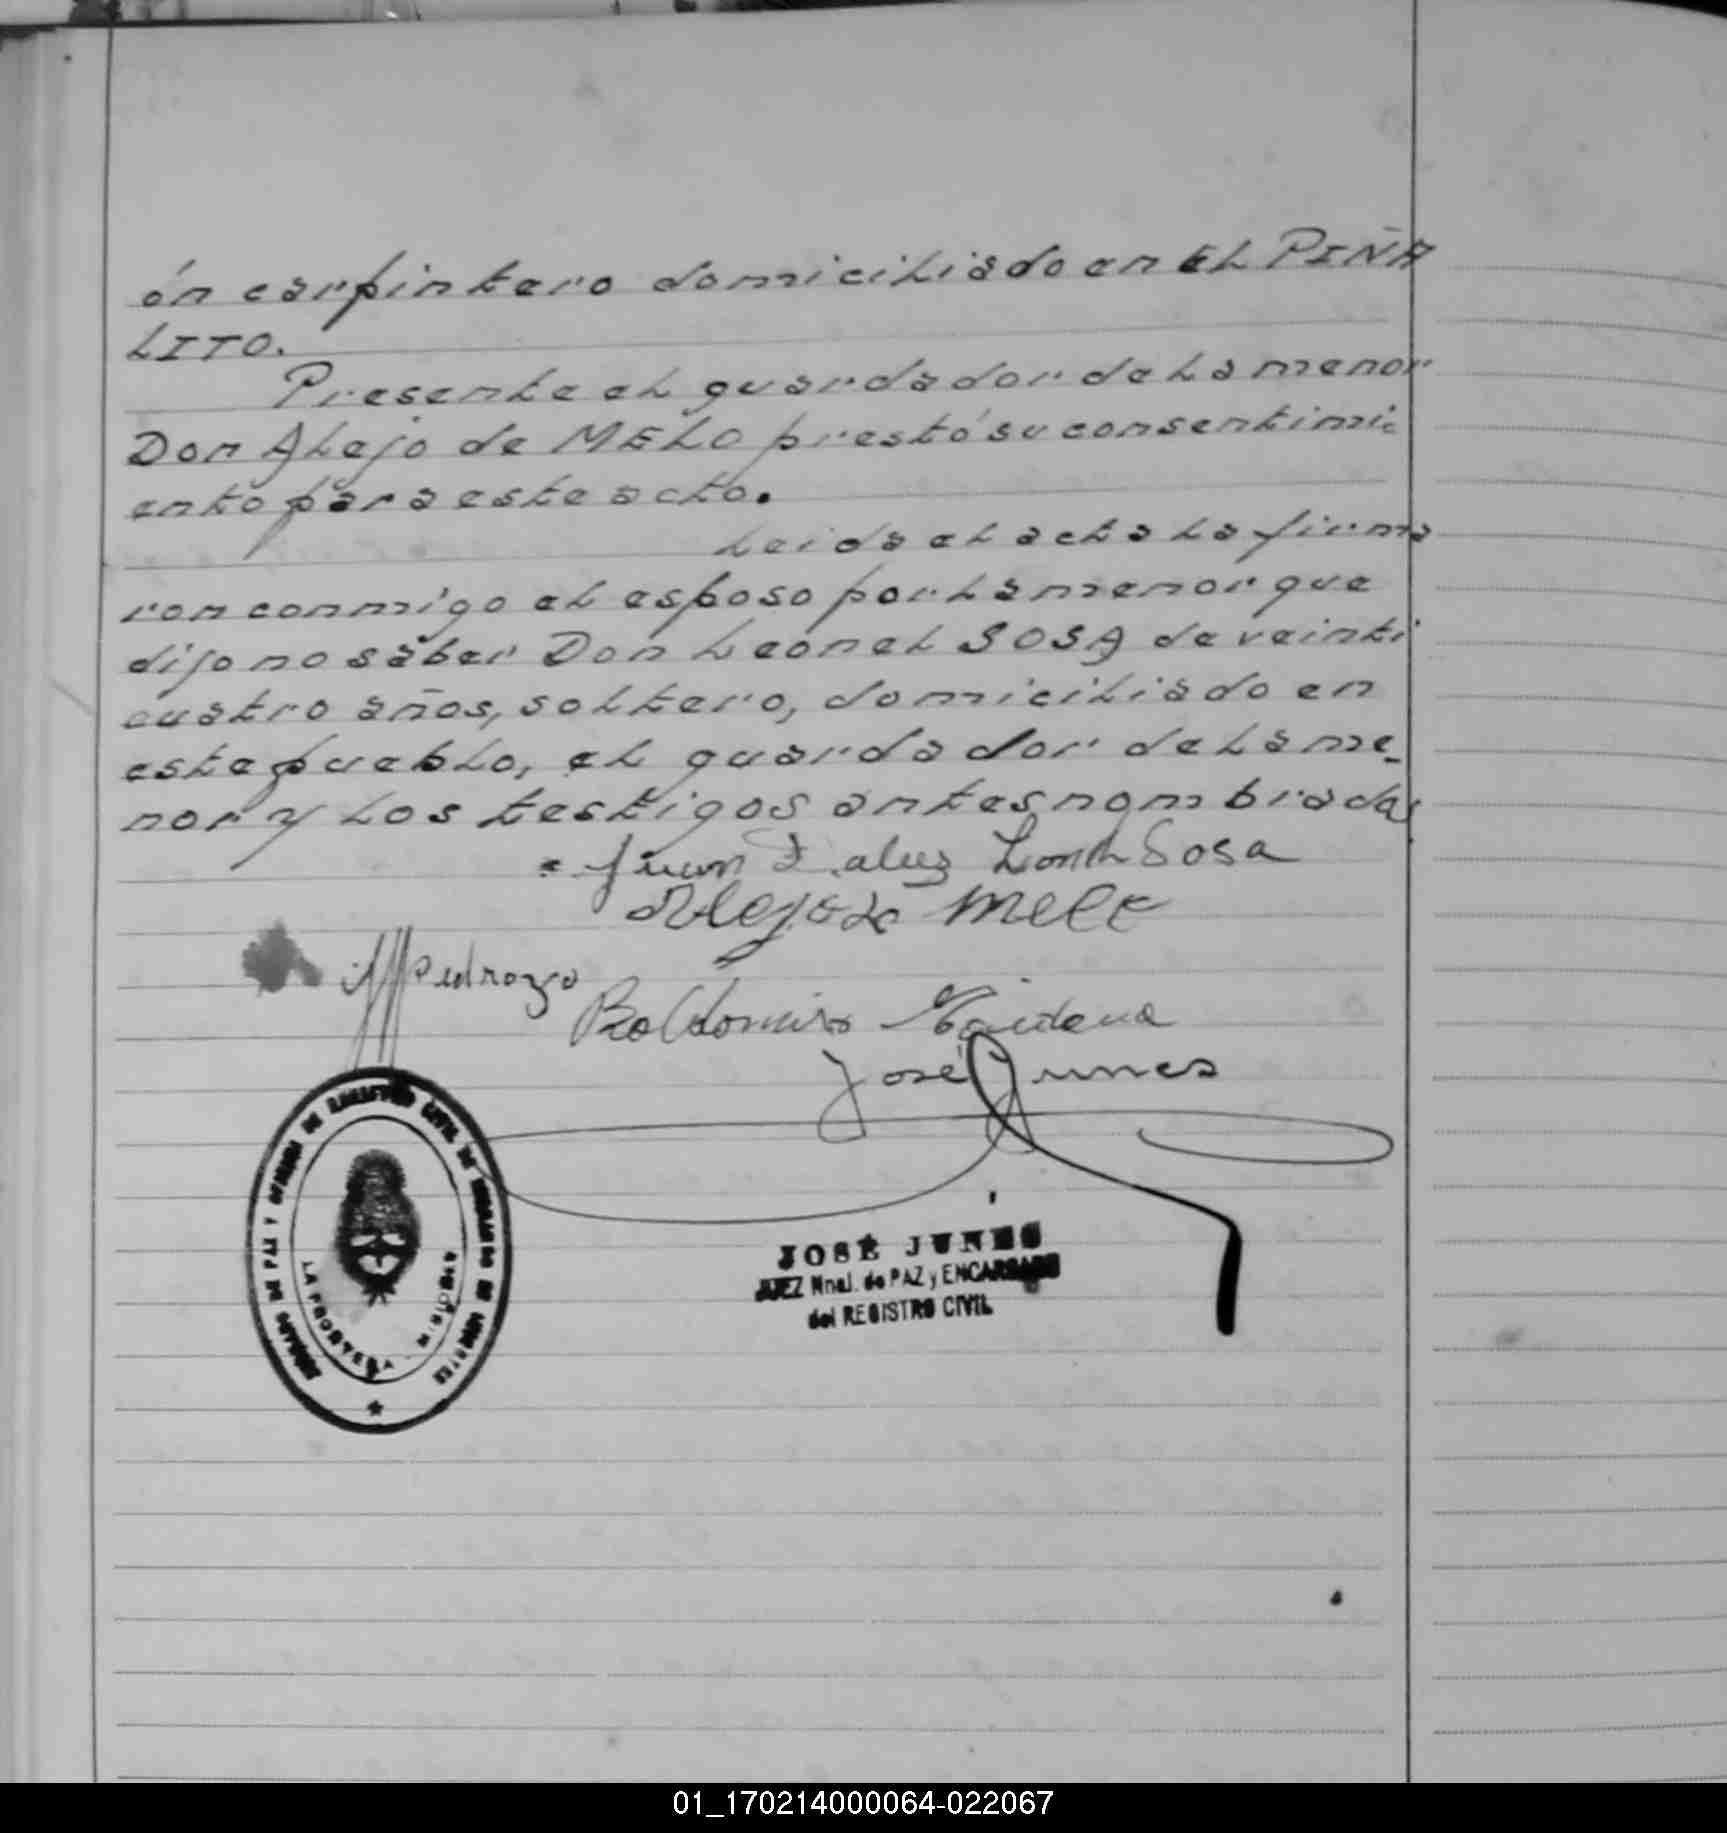 ón carpintero domiciliado en EL PIÑA
LITO.
Presente el guardador de la menor
Don Alejo de MELO prestó su consentimi
ento para este acto.
Leida el acta la firma
ron conmigo el esposo por la menor que
dijo no saber Don Leonel SOSA de veinti
cuatro años, soltero, domiciliado en
este pueblo, el guardador de la me_
nor y los testigos antes nombrados
Juan Sosa
Alejo de Melo
Pedrozo
Baldomiro
José Junes
JUZGADO DE PAZ Y OFICINA DE REGISTRO CIVIL DE
LA PROSERPINA
JOSE JUNES
JUEZ Nnal. de PAZ y ENCARGADO
del REGISTRO CIVIL
01_170214000064-022067